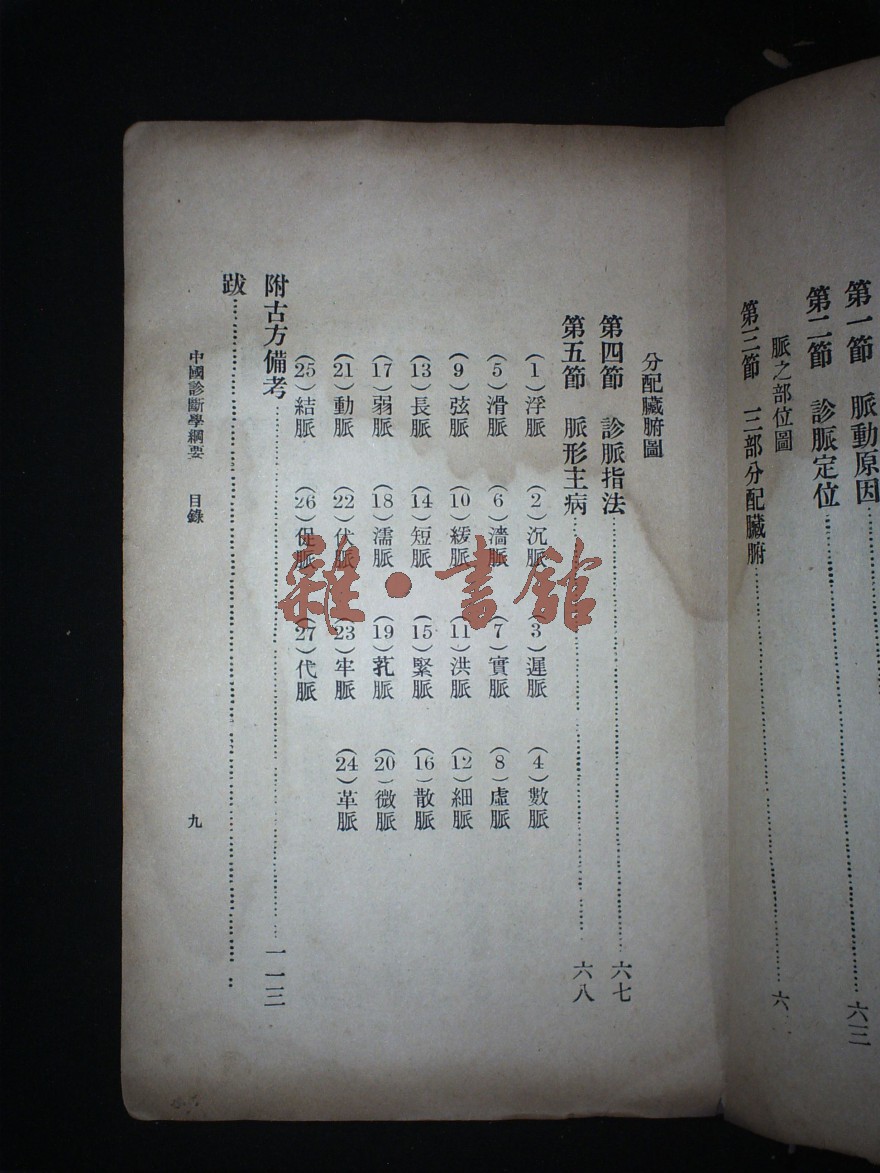 第一節　脈動原因……六三
第二節　診脈定位……
脈之部位圖
第三節　三部分配臟腑……六
分配臟腑圖
第四節　診脈指法……六七
第五節　脈形主病……六八
(1)浮脈　(2)沉脈　(3)遲脈　(4)數脈
(5)滑脈　(6)濇脈　(7)實脈　(8)虛脈
(9)弦脈　(10)緩脈　(11)洪脈　(12)細脈
(13)長脈　(14)短脈　(15)緊脈　(16)散脈
(17)弱脈　(18)濡脈　(19)芤脈　(20)微脈
(21)動脈　(22)伏脈　(23)牢脈　(24)革脈
(25)結脈　(26)促脈　(27)代脈
附古方備考……一一三
跋……
中國診斷學綱要　目錄　九
雜·書館